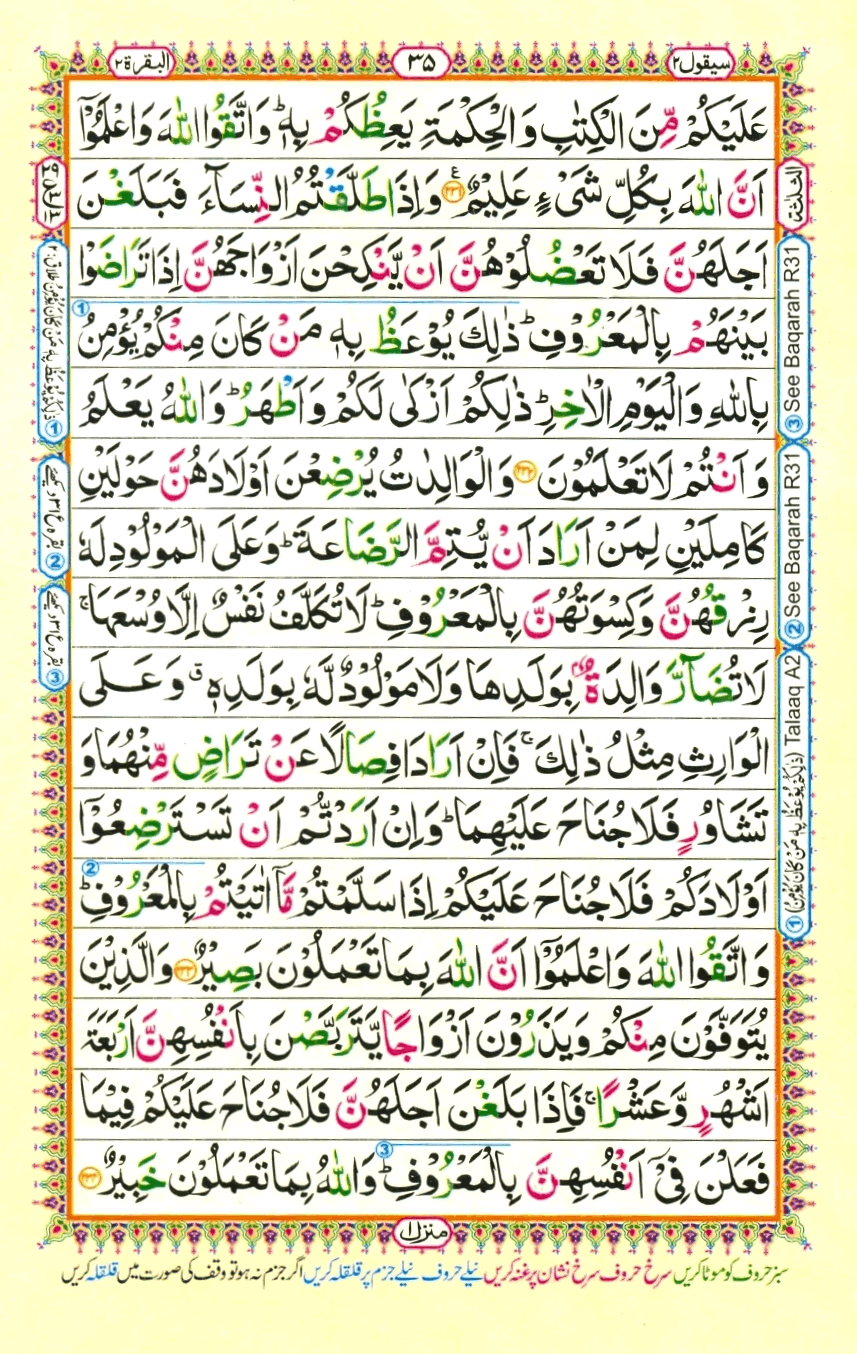 سيقول٢
٣٥
البقرة٢
عَلَيْكُمْ مِّنَ الْكِتٰبِ وَالْحِكْمَةِ يَعِظُكُمْ بِهٖ ؕ وَاتَّقُوا اللّٰهَ وَاعْلَمُوْۤا
اَنَّ اللّٰهَ بِكُلِّ شَىْءٍ عَلِيْمٌ ﴿۲۳۱﴾ وَاِذَا طَلَّقْتُمُ النِّسَآءَ فَبَلَغْنَ
اَجَلَهُنَّ فَلَا تَعْضُلُوْهُنَّ اَنْ يَّنْكِحْنَ اَزْوَاجَهُنَّ اِذَا تَرَاضَوْا
بَيْنَهُمْ بِالْمَعْرُوْفِ ؕ ذٰلِكَ يُوْعَظُ بِهٖ مَنْ كَانَ مِنْكُمْ يُؤْمِنُ
بِاللّٰهِ وَالْيَوْمِ الْاٰخِرِ ؕ ذٰلِكُمْ اَزْكٰى لَكُمْ وَاَطْهَرُ ؕ وَاللّٰهُ يَعْلَمُ
وَاَنْتُمْ لَا تَعْلَمُوْنَ ﴿۲۳۲﴾ وَالْوَالِدٰتُ يُرْضِعْنَ اَوْلَادَهُنَّ حَوْلَيْنِ
كَامِلَيْنِ لِمَنْ اَرَادَ اَنْ يُّتِمَّ الرَّضَاعَةَ ؕ وَعَلَى الْمَوْلُوْدِ لَهٗ
رِزْقُهُنَّ وَكِسْوَتُهُنَّ بِالْمَعْرُوْفِ ؕ لَا تُكَلَّفُ نَفْسٌ اِلَّا وُسْعَهَا ۚ
لَا تُضَآرَّ وَالِدَةٌۢ بِوَلَدِهَا وَلَا مَوْلُوْدٌ لَّهٗ بِوَلَدِهٖ ۗ وَعَلَى
الْوَارِثِ مِثْلُ ذٰلِكَ ۚ فَاِنْ اَرَادَا فِصَالًا عَنْ تَرَاضٍ مِّنْهُمَا وَ
تَشَاوُرٍ فَلَا جُنَاحَ عَلَيْهِمَا ؕ وَاِنْ اَرَدْتُّمْ اَنْ تَسْتَرْضِعُوْۤا
اَوْلَادَكُمْ فَلَا جُنَاحَ عَلَيْكُمْ اِذَا سَلَّمْتُمْ مَّاۤ اٰتَيْتُمْ بِالْمَعْرُوْفِ ؕ
وَاتَّقُوا اللّٰهَ وَاعْلَمُوْۤا اَنَّ اللّٰهَ بِمَا تَعْمَلُوْنَ بَصِيْرٌ ﴿۲۳۳﴾ وَالَّذِيْنَ
يُتَوَفَّوْنَ مِنْكُمْ وَيَذَرُوْنَ اَزْوَاجًا يَّتَرَبَّصْنَ بِاَنْفُسِهِنَّ اَرْبَعَةَ
اَشْهُرٍ وَّعَشْرًا ۚ فَاِذَا بَلَغْنَ اَجَلَهُنَّ فَلَا جُنَاحَ عَلَيْكُمْ فِيْمَا
فَعَلْنَ فِىْۤ اَنْفُسِهِنَّ بِالْمَعْرُوْفِ ؕ وَاللّٰهُ بِمَا تَعْمَلُوْنَ خَبِيْرٌ ﴿۲۳۴﴾
③ See Baqarah R31
② See Baqarah R31
① (ذٰلِكُمْ يُوْعَظُ بِهٖ مَنْ كَانَ يُؤْمِنُ) Talaaq A2
① ذٰلِكُمْ يُوْعَظُ بِهٖ مَنْ كَانَ يُؤْمِنُ طلاق: ۲
② بقره ع ۳۱ دیکھئے
③ بقره ع ۳۱ دیکھئے
منزل ١
سبز حروف کو موٹا کریں سرخ حروف سرخ نشان پر غنہ کریں نیلے حروف نیلے جزم پر قلقلہ کریں اگر جزم نہ ہو تو وقف کی صورت میں قلقلہ کریں